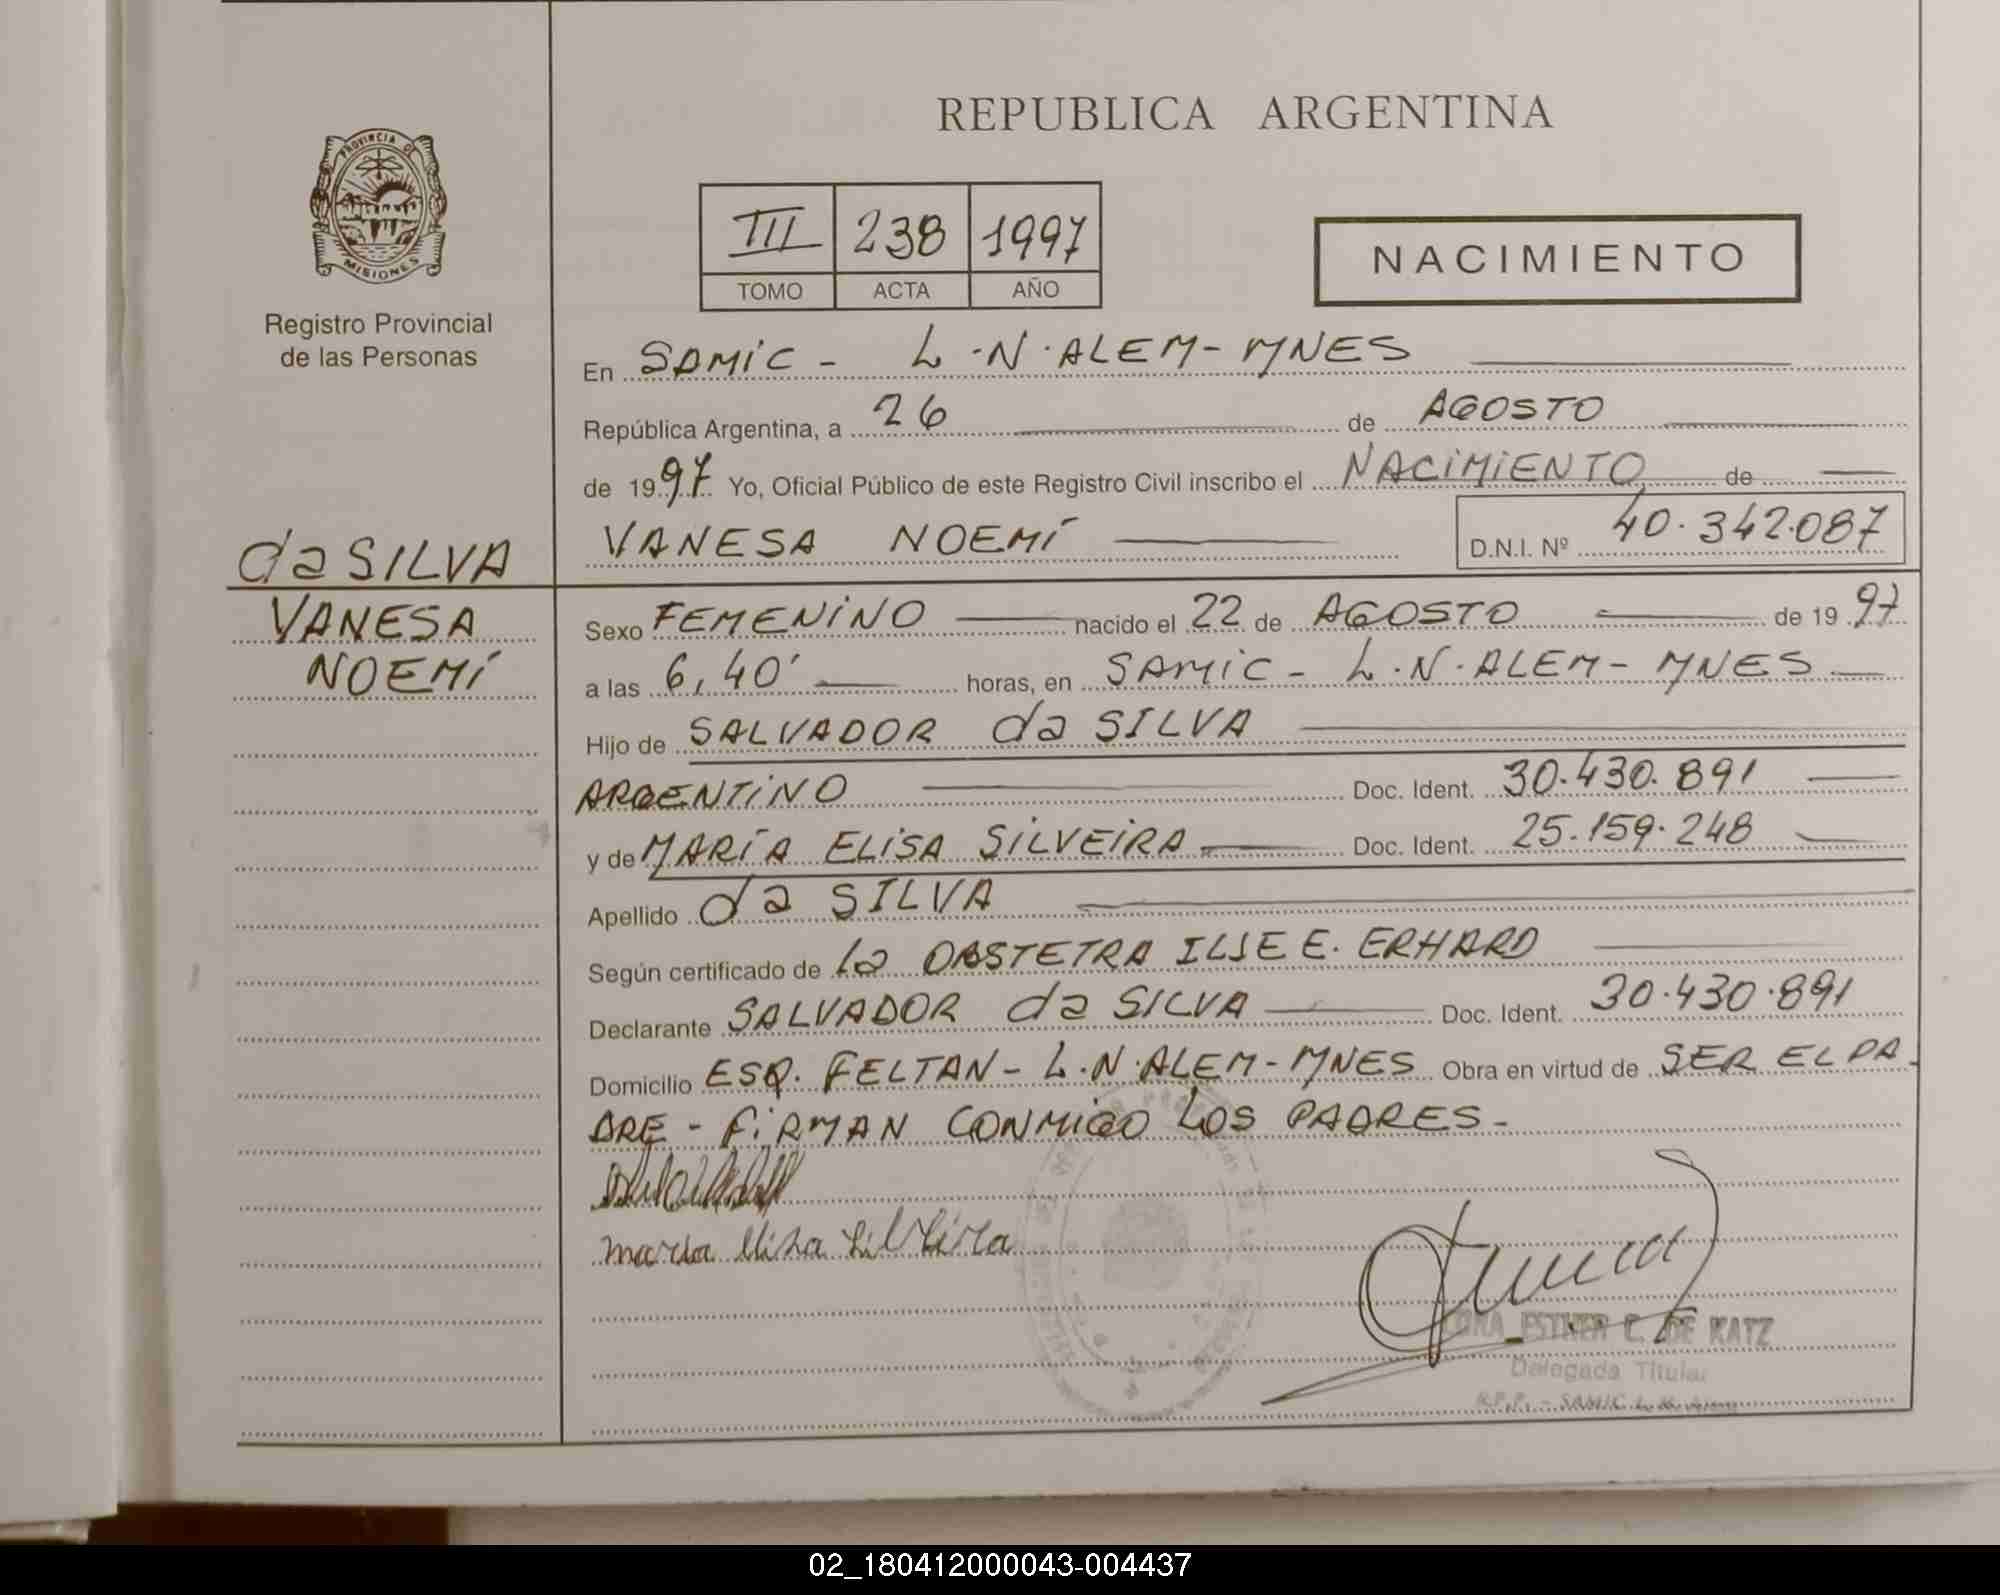 REPUBLICA ARGENTINA
PROVINCIA DE
MISIONES
Registro Provincial
de las Personas
III 238 1997
TOMO ACTA AÑO
NACIMIENTO
En SAMIC - L.N.ALEM-MNES
República Argentina, a 26 de AGOSTO
de 1997 Yo, Oficial Público de este Registro Civil inscribo el NACIMIENTO de
VANESA NOEMÍ D.N.I. Nº 40.342.087
da SILVA
VANESA
NOEMÍ
Sexo FEMENINO nacido el 22 de AGOSTO de 1997
a las 6,40' horas, en SAMIC - L.N.ALEM-MNES
Hijo de SALVADOR da SILVA
ARGENTINO Doc. Ident. 30.430.891
y de MARÍA ELISA SILVEIRA Doc. Ident. 25.159.248
Apellido da SILVA
Según certificado de la OBSTETRA ILSE E. ERHARD
Declarante SALVADOR da SILVA Doc. Ident. 30.430.891
Domicilio ESQ. FELTAN - L.N.ALEM-MNES Obra en virtud de SER EL PA-
DRE - FIRMAN CONMIGO LOS PADRES-
maria elisa silveira
ESTHER C. DE KATZ
Delegada Titular
R.P.P. - SAMIC L. N. Alem
02_180412000043-004437